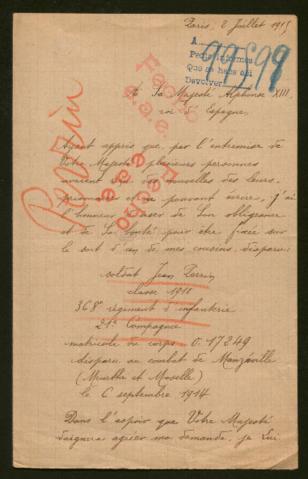 Paris, 2 Juillet 1915
A
99598
Pedir informes
Que se hace así
Devolver
A Sa Majesté Alphonse XIII
roi d'Espagne.
Ayant appris que, par l'entremise de
Votre Majesté plusieurs personnes
avaient des nouvelles des leurs,
prisonniers et ne pouvant écrire, j'ai
l'honneur d'user de Son obligeance
et de Sa bonté pour être fixée sur
le sort d'un de mes cousins disparu:
soldat Jean Perrin
classe 1911
368e régiment d'infanterie
21e Compagnie
matricule du corps 0.17249
disparu au combat de
(Meurthe et Moselle)
le 6 septembre 1914
Dans l'espoir que Votre Majesté
daignera agréer ma demande, je Lui
Perrin